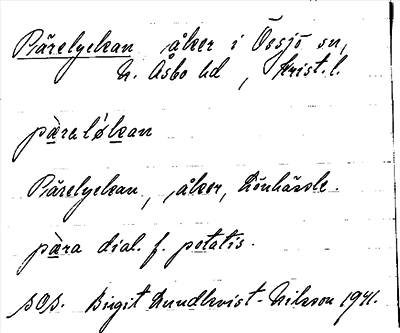 Pärelyckan åker i Össjö sn,
N. Åsbo hd, Krist. l.
pæ̀ralýkan
Pärelyckan, åker, Rönhäsle.
pæra dial. f. potatis.
SOS. Birgit Lundkvist-Nilsson 1941.